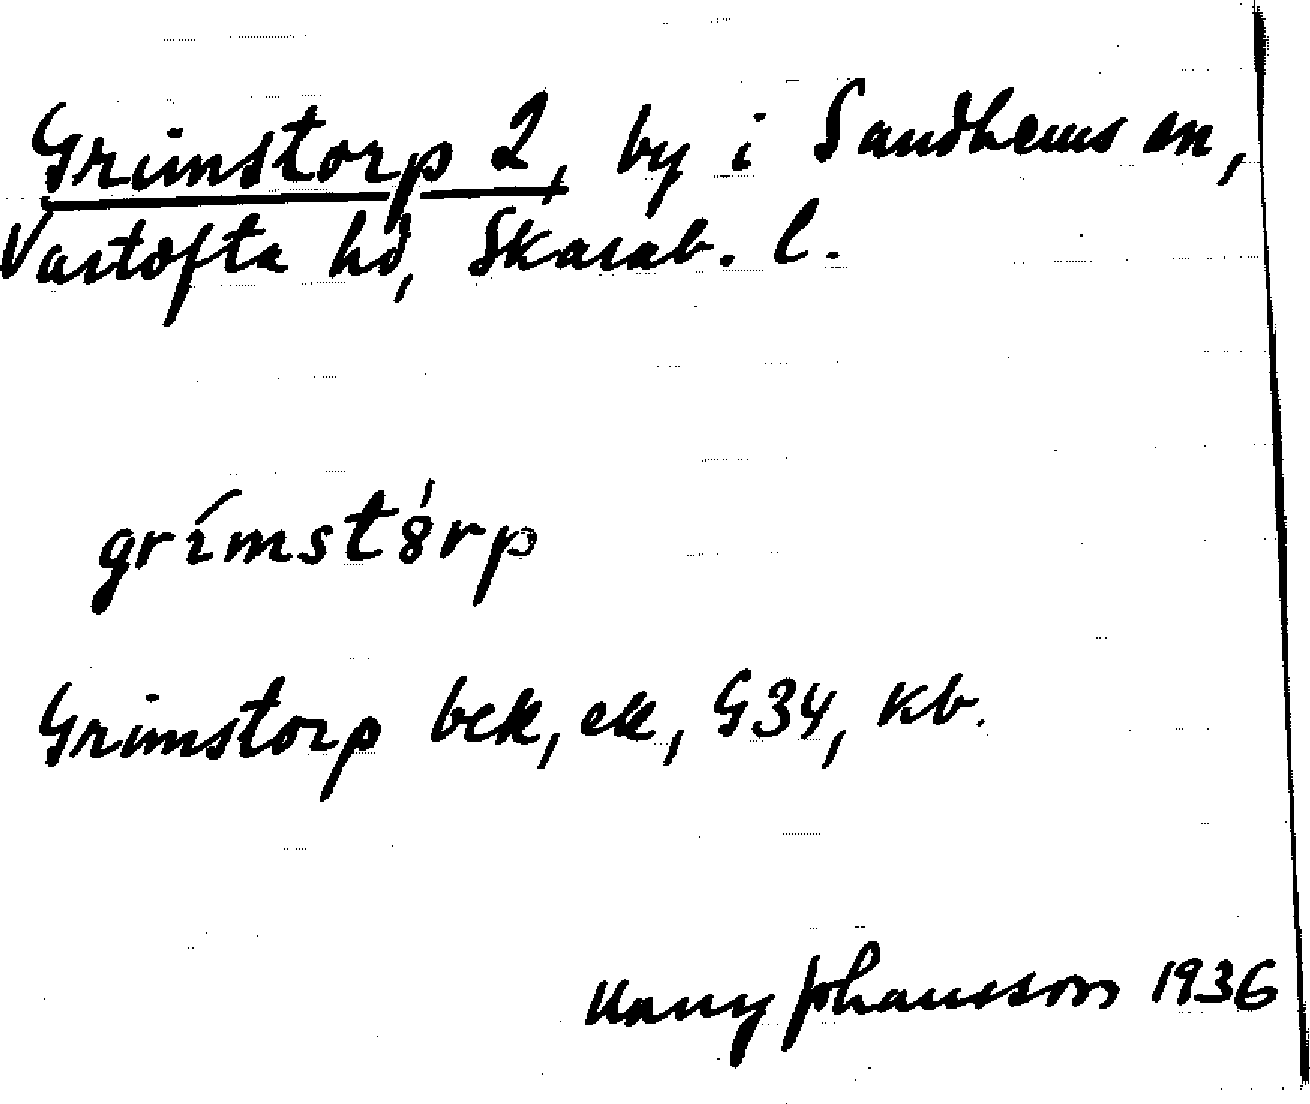 Grimstorp 2, by i Sandhems sn,
Vartofta hd, Skarab. l.
grímst8́rp
Grimstorp bek, ek, G34, kb.
Johansson 1936